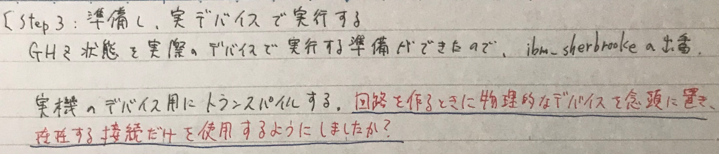 [Step 3: 準備し、実デバイスで実行する
GHZ 状態を実際のデバイスで実行する準備ができたので、ibm_sherbrookeの出番。
実機のデバイス用にトランスパイルする。回路を作るときに物理的なデバイスを念頭に置き、
存在する接続だけを使用するようにしましたか?